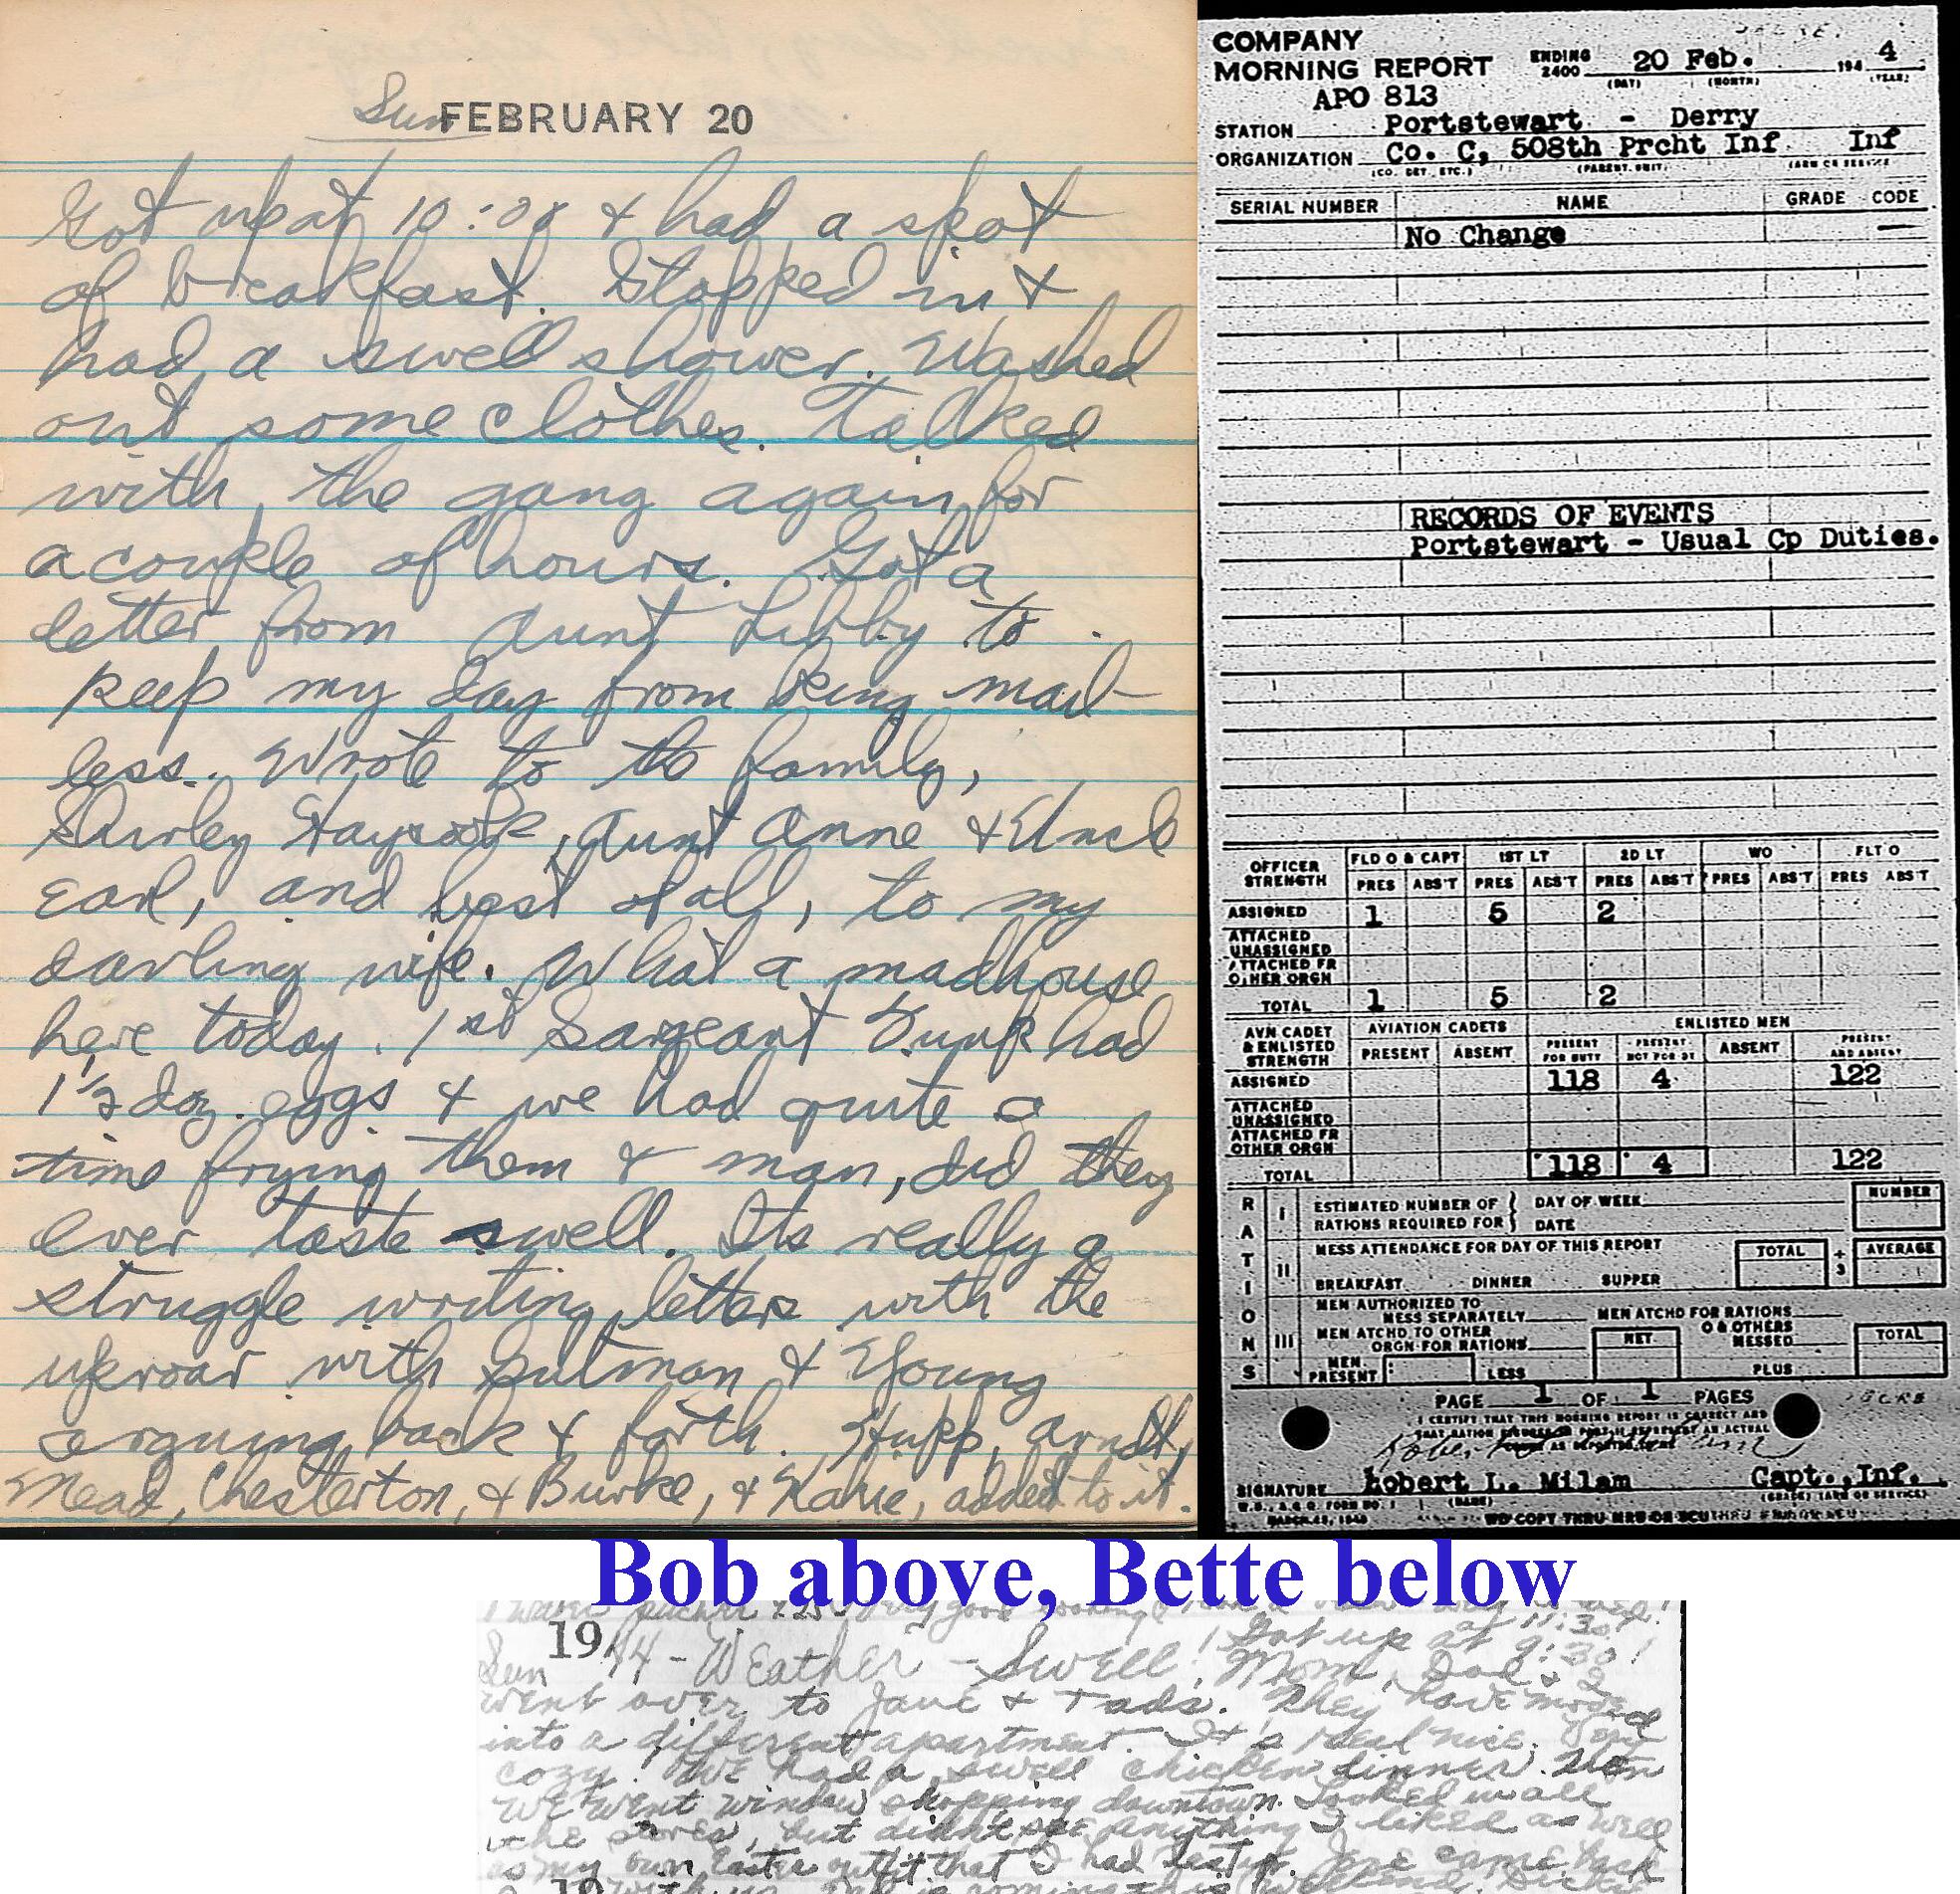 Sun FEBRUARY 20
Got up at 10:00 & had a spot
of breakfast. Stopped in &
had a swell shower. Washed
out some clothes. Talked
with the gang again for
a couple of hours. Got a
letter from Aunt Libby to
keep my day from being mail-
less. Wrote to the family,
Shirley, Aunt Anne & Uncle
Earl, and best of all, to my
darling wife. What a madhouse
here today. 1st Sargeant Funk had
1 1/2 doz. eggs & we had quite a
time frying them & man, did they
ever taste swell. Its really a
struggle writing letters with the
uproar with Putman & Young
arguing back & forth. Hupp, Arndt,
Mead, Chesterton, & Burke, & added to it.
COMPANY
MORNING REPORT ENDING 2400 20 Feb. 194 4
(DAY) (MONTH) (YEAR)
APO 813
STATION Portstewart - Derry
ORGANIZATION Co. C, 508th Prcht Inf Inf
(CO. DET. ETC.) (PARENT. UNIT) (ARM OR SERVICE)
SERIAL NUMBER NAME GRADE CODE
No Change —
RECORDS OF EVENTS
Portstewart - Usual Cp Duties.
OFFICER STRENGTH FLD O & CAPT 1ST LT 2D LT WO FLT O
PRES ABS'T PRES ABS'T PRES ABS'T PRES ABS'T PRES ABS'T
ASSIGNED 1 5 2
ATTACHED UNASSIGNED
ATTACHED FR OTHER ORGN
TOTAL 1 5 2
AVN CADET & ENLISTED STRENGTH AVIATION CADETS ENLISTED MEN
PRESENT ABSENT PRESENT FOR DUTY PRESENT NOT FOR DY ABSENT PRESENT AND ABSENT
ASSIGNED 118 4 122
ATTACHED UNASSIGNED
ATTACHED FR OTHER ORGN
TOTAL 118 4 122
RATIONS
I ESTIMATED NUMBER OF RATIONS REQUIRED FOR } DAY OF WEEK DATE NUMBER
II MESS ATTENDANCE FOR DAY OF THIS REPORT TOTAL ÷ 3 AVERAGE
BREAKFAST DINNER SUPPER
III MEN AUTHORIZED TO MESS SEPARATELY MEN ATCHD FOR RATIONS
MEN ATCHD TO OTHER ORGN FOR RATIONS NET O & OTHERS MESSED TOTAL
MEN PRESENT LESS PLUS
PAGE 1 OF 1 PAGES
I CERTIFY THAT THIS MORNING REPORT IS CORRECT AND
SIGNATURE Robert L. Milam Capt., Inf.
(NAME) (GRADE) (ARM OR SERVICE)
W.D., A.G.O. FORM NO. 1
Bob above, Bette below
at 11:30.
1944 - Weather - Swell! Got up at 9:30!
Sun Mom, Dad & I
went over to Jane & Tads. They have moved
into a different apartment. It's real nice. Very
cozy. We had a swell chicken dinner. Then
we went window shopping downtown. Looked in all
the stores, but didn't see anything I liked as well
as my own Easter outfit that I had last yr. Jane came back
19 with us.